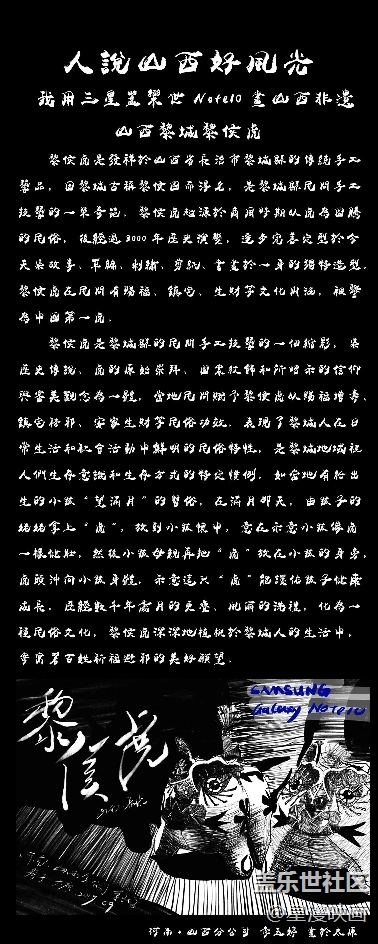 人說山西好風光
我用三星蓋樂世Note10畫山西非遺
山西黎城黎侯虎
黎侯虎是發祥於山西省長治市黎城縣的傳統手工
藝品，因黎城古稱黎侯國而得名，是黎城縣民間手工
技藝的一朵奇葩。黎侯虎起源於商周時期以虎為圖騰
的民俗，後經過3000年歷史演變，逐步完善定型於今
天集故事、
刺繡、剪紙、書畫於一身的獨特造型。
黎侯虎在民間有賜福、鎮宅、生財等文化內涵，被譽
為中國第一虎。
黎侯虎是黎城縣的民間手工技藝的一個縮影，集
歷史傳說、虎的原始崇拜、圖案紋飾和所暗示的信仰
與審美觀念為一體，當地民間賦予黎侯虎以賜福增壽、
鎮宅辟邪、安家生財等民俗功效。表現了黎城人在日
常生活和社會活動中鮮明的民俗特性，是黎城地域視
人們生存意識和生存方式的特定慣例。如當地有給出
生的小孩“望滿月”的習俗，在滿月那天，由孩子的
姥姥拿上“虎”，放到小孩懷中，意在示意小孩像虎
一樣健壯，然後小孩母親再把“虎”放在小孩的身旁，
虎頭沖向小孩身體，示意這只“虎”能護佑孩子健康
成長。歷經數千年歲月的更臺、
的洗禮，化為一
種民俗文化，黎侯虎深深地植根於黎城人的生活中，
寄寓著百姓祈福避邪的美好願望。
黎侯虎
SAMSUNG
Galaxy Note10
盖乐世社区
@星漫映画
河南·山西分公司 李玉婷 畫於太原